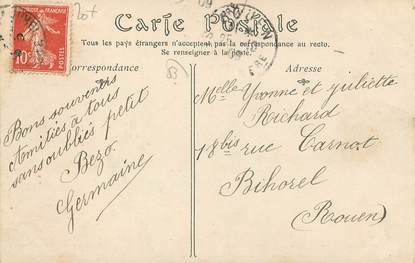 Carte Postale
Tous les pays étrangers n'acceptent pas la correspondance au recto.
Se renseigner à la poste.
Correspondance
Adresse
Bons souvenirs
Amitiés à tous
sans oublier petit
Bezo.
Germaine
Melle Yvonne et juliette
Richard
18bis rue Carnot
Bihorel
(Rouen)
10